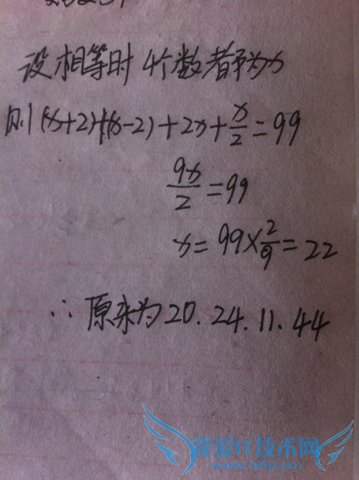 设相等时4个数都为x
则(x+2)+(x-2)+2x+x/2=99
9x/2=99
x=99×2/9=22
∴原来为20.24.11.44